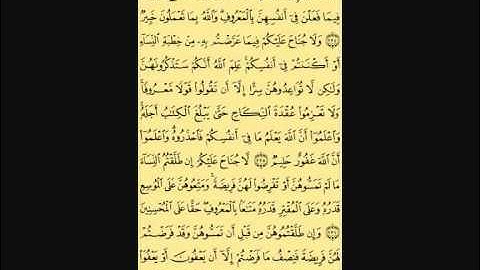 فِيمَا فَعَلْنَ فِىٓ أَنفُسِهِنَّ بِٱلْمَعْرُوفِ ۗ وَٱللَّهُ بِمَا تَعْمَلُونَ خَبِيرٌ
﴿٢٣٤﴾ وَلَا جُنَاحَ عَلَيْكُمْ فِيمَا عَرَّضْتُم بِهِۦ مِنْ خِطْبَةِ ٱلنِّسَآءِ
أَوْ أَكْنَنتُمْ فِىٓ أَنفُسِكُمْ ۚ عَلِمَ ٱللَّهُ أَنَّكُمْ سَتَذْكُرُونَهُنَّ
وَلَٰكِن لَّا تُوَاعِدُوهُنَّ سِرًّا إِلَّآ أَن تَقُولُوا۟ قَوْلًا مَّعْرُوفًا ۚ
وَلَا تَعْزِمُوا۟ عُقْدَةَ ٱلنِّكَاحِ حَتَّىٰ يَبْلُغَ ٱلْكِتَٰبُ أَجَلَهُۥ ۚ
وَٱعْلَمُوٓا۟ أَنَّ ٱللَّهَ يَعْلَمُ مَا فِىٓ أَنفُسِكُمْ فَٱحْذَرُوهُ ۚ وَٱعْلَمُوٓا۟
أَنَّ ٱللَّهَ غَفُورٌ حَلِيمٌ ﴿٢٣٥﴾ لَّا جُنَاحَ عَلَيْكُمْ إِن طَلَّقْتُمُ ٱلنِّسَآءَ
مَا لَمْ تَمَسُّوهُنَّ أَوْ تَفْرِضُوا۟ لَهُنَّ فَرِيضَةً ۚ وَمَتِّعُوهُنَّ عَلَى ٱلْمُوسِعِ
قَدَرُهُۥ وَعَلَى ٱلْمُقْتِرِ قَدَرُهُۥ مَتَٰعًۢا بِٱلْمَعْرُوفِ ۖ حَقًّا عَلَى ٱلْمُحْسِنِينَ
﴿٢٣٦﴾ وَإِن طَلَّقْتُمُوهُنَّ مِن قَبْلِ أَن تَمَسُّوهُنَّ وَقَدْ فَرَضْتُمْ
لَهُنَّ فَرِيضَةً فَنِصْفُ مَا فَرَضْتُمْ إِلَّآ أَن يَعْفُونَ أَوْ يَعْفُوَا۟